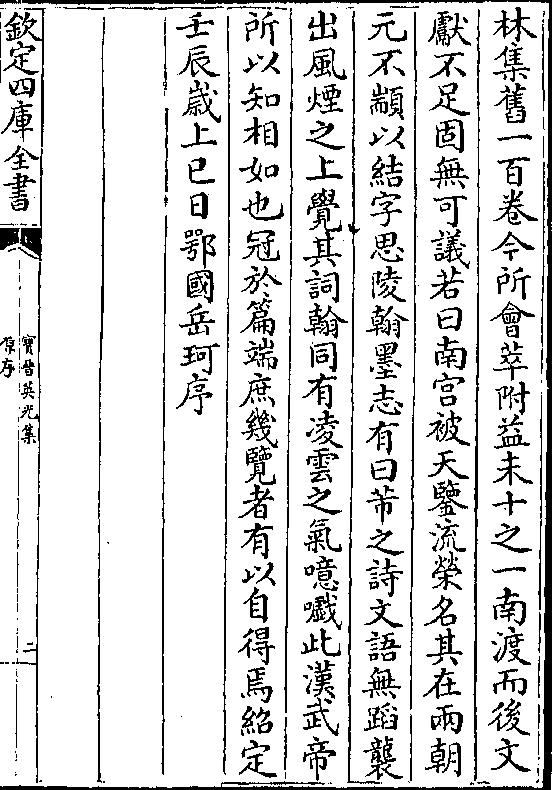 林集舊一百卷今所會萃附益未十之一南渡而後文
獻不足固無可議若曰南宫被天鑒流榮名其在兩朝
元不顓以結字思陵翰墨志有曰芾之詩文語無蹈襲
出風煙之上覺其詞翰同有凌雲之氣噫嘻此漢武帝
所以知相如也冠於篇端庶幾覽者有以自得焉紹定
壬辰歲上巳日鄂國岳珂序
欽定四庫全書
寶晉英光集
原序
二